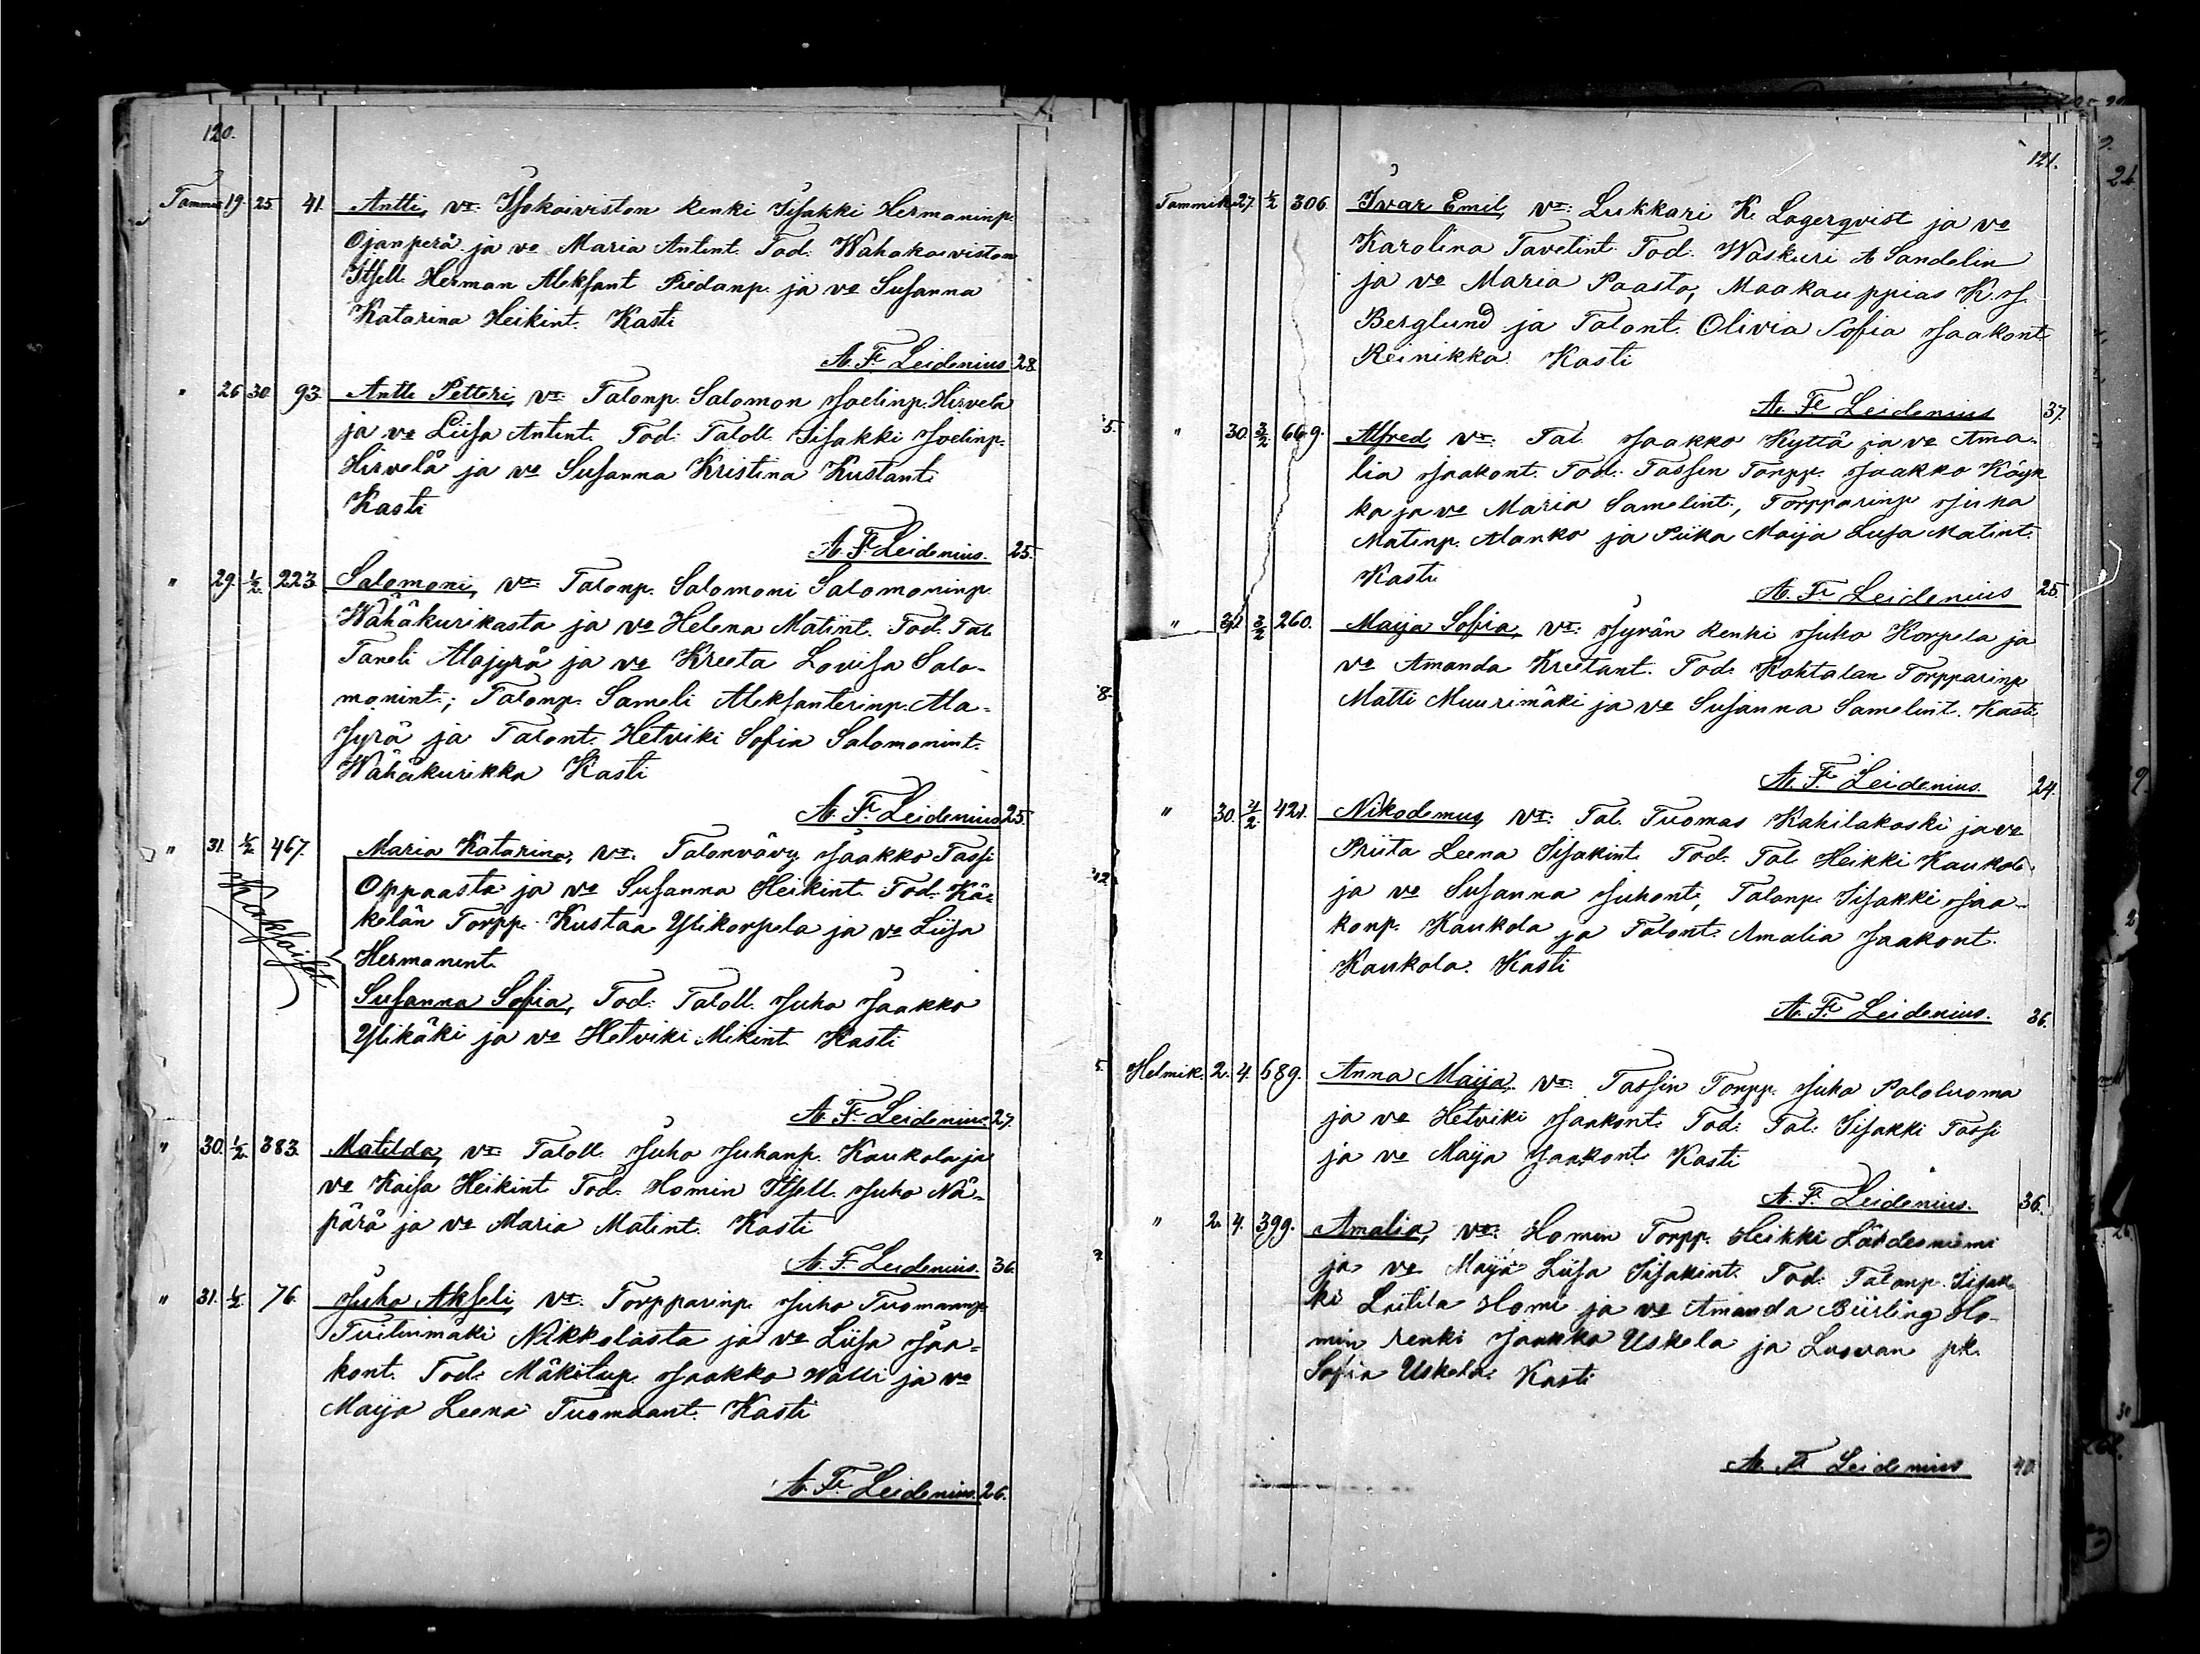 120.
Tammik 19 25 41. Antti, vt: Isokoiviston Renki Iisakki Hermaninp.
Ojanperä ja vo Maria Antint. Tod. Wähäkoiviston
Itsell. Herman Aleksant Piedanp. ja vo Susanna
Katarina Heikint. Kasti
A. F. Leidenius. 28
" 26 30 93. Antti Petteri, vt: Talonp. Salomon Joelinp. Hirvelä
ja vo Liisa Antint. Tod: Taloll. Iisakki Joelinp.
Hirvelä ja vo Susanna Kristina Kustant.
Kasti
A. F. Leidenius. 25.
" 29. 1/2. 223. Salomoni, vt: Talonp. Salomoni Salomoninp.
Wähäkurikasta ja vo Helena Matint. Tod: Tal.
Taneli Alajyrä ja vo Kreeta Lovisa Salo-
monint.; Talonp. Sameli Aleksanterinp. Ala-
jyrä ja Talont. Hetviki Sofia Salomonint.
Wähäkurikka Kasti
A. F. Leidenius 25.
" 31. 1/2 467. Maria Katarina, vt: Talonvävy Jaakko Tassi
Oppaasta ja vo Susanna Heikint. Tod: Kä-
kelän Torpp. Kustaa Ylikorpela ja vo Liisa
Hermanint.
Kaksoiset
Susanna Sofia, Tod: Taloll. Juho Jaakko
Ylikäki ja vo Hetviki Mikint. Kasti
A. F. Leidenius. 27.
" 30. 1/2. 383. Matilda, vt: Taloll. Juho Juhanp. Kaukola ja
vo Kaisa Heikint. Tod: Homin Itsell. Juho Nä-
pärä ja vo Maria Matint. Kasti
A. F. Leidenius. 36.
" 31. 1/2. 76. Juho Akseli, vt: Torpparinp. Juho Tuomaanp.
Tuiluumäki Nikkolasta ja vo Liisa Jaa-
kont. Tod: Mäkitup. Jaakko Walli ja vo
Maija Leena Tuomaant. Kasti
A. F. Leidenius. 26.
121.
Tammik. 27. 1/2 306. Ivar Emil, vt: Lukkari K. Lagerqvist ja vo
Karolina Tavetint. Tod: Waskuri A Sandelin
ja vo Maria Paasto, Maakauppias K. J.
Berglund ja Talont. Olivia Sofia Jaakont
Reinikka. Kasti
A. F. Leidenius 37.
" 30. 3/2 669. Alfred vt: Tal. Jaakko Kyttä ja vo Ama-
lia Jaakont. Tod: Tassin Torpp. Jaakko Köyk
kä ja vo Maria Samelint., Torpparinp Juha
Matinp. Alanko ja Piika Maija Liisa Matint.
Kasti
A. F. Leidenius 25.
" 31 3/2 260. Maija Sofia, vt: Jyrän Renki Juho Korpela ja
vo Amanda Kreetant. Tod: Kohtalan Torpparinp
Matti Muurimäki ja vo Susanna Samelint. Kasti
A. F. Leidenius. 24.
" 30. 4/2 421. Nikodemus, vt: Tal. Tuomas Kahilakoski ja vo
Priita Leena Iisakint. Tod: Tal. Heikki Kaukola
ja vo Susanna Juhont., Talonp. Iisakki Jaa-
konp. Kaukola ja Talont. Amalia Jaakont.
Kaukola. Kasti
A. F. Leidenius. 36.
Helmik. 2. 4. 589. Anna Maija, vt: Tassin Torpp. Juha Paloluoma
ja vo Hetviki Jaakont. Tod: Tal: Iisakki Tassi
ja vo Maija Jaakont. Kasti
A. F. Leidenius. 36.
" 2. 4. 399. Amalia, vt: Homin Torpp. Heikki Lähdesniemi
ja vo Maija Liisa Iisakint. Tod: Talonp. Iisak-
ki Laitila Homi ja vo Amanda Biirling Ho-
min renki Jaakko Uskela ja Luovan pk.
Sofia Uskela. Kasti
A. F. Leidenius 40.